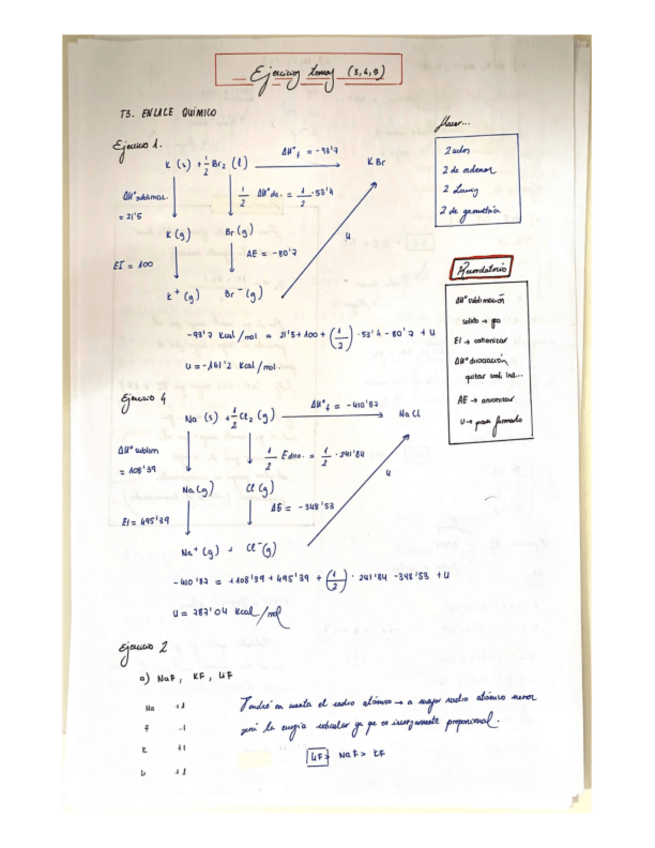 Ejercicios temas (3,4,9)
T3. ENLACE QUÍMICO
Hacer...
2 ciclos
2 de ordenar
2 Lewis
2 de geometría
Ejercicio 1.
K (s) + 1/2 Br₂ (l) ΔH°f = -93'7 KBr
ΔH° sublimac. = 21'5
1/2 ΔH° dis. = 1/2 · 53'4
K (g) Br (g)
EI = 100
AE = -80'7
U
K⁺ (g) Br⁻ (g)
-93'7 Kcal/mol = 21'5 + 100 + (1/2) · 53'4 - 80'7 + U
U = -161'2 Kcal/mol.
Recordatorio
ΔH° sublimación
solido → gas
EI → cationizar
ΔH° disociación
quitar
AE → anionizar
U → para formado
Ejercicio 4
Na (s) + 1/2 Cl₂ (g) ΔH°f = -410'87 NaCl
ΔH° sublim = 108'39
1/2 E diso. = 1/2 · 241'84
Na (g) Cl (g)
EI = 495'39
AE = -348'53
U
Na⁺ (g) + Cl⁻ (g)
-410'87 = +108'39 + 495'39 + (1/2) · 241'84 - 348'53 + U
U = 787'04 Kcal/mol
Ejercicio 2
a) NaF, KF, LiF
Na +1
F -1
K +1
Li +1
Tendré en cuenta el radio atómico → a mayor radio atómico menor
será la energía reticular ya que es inversamente proporcional.
LiF > NaF > KF